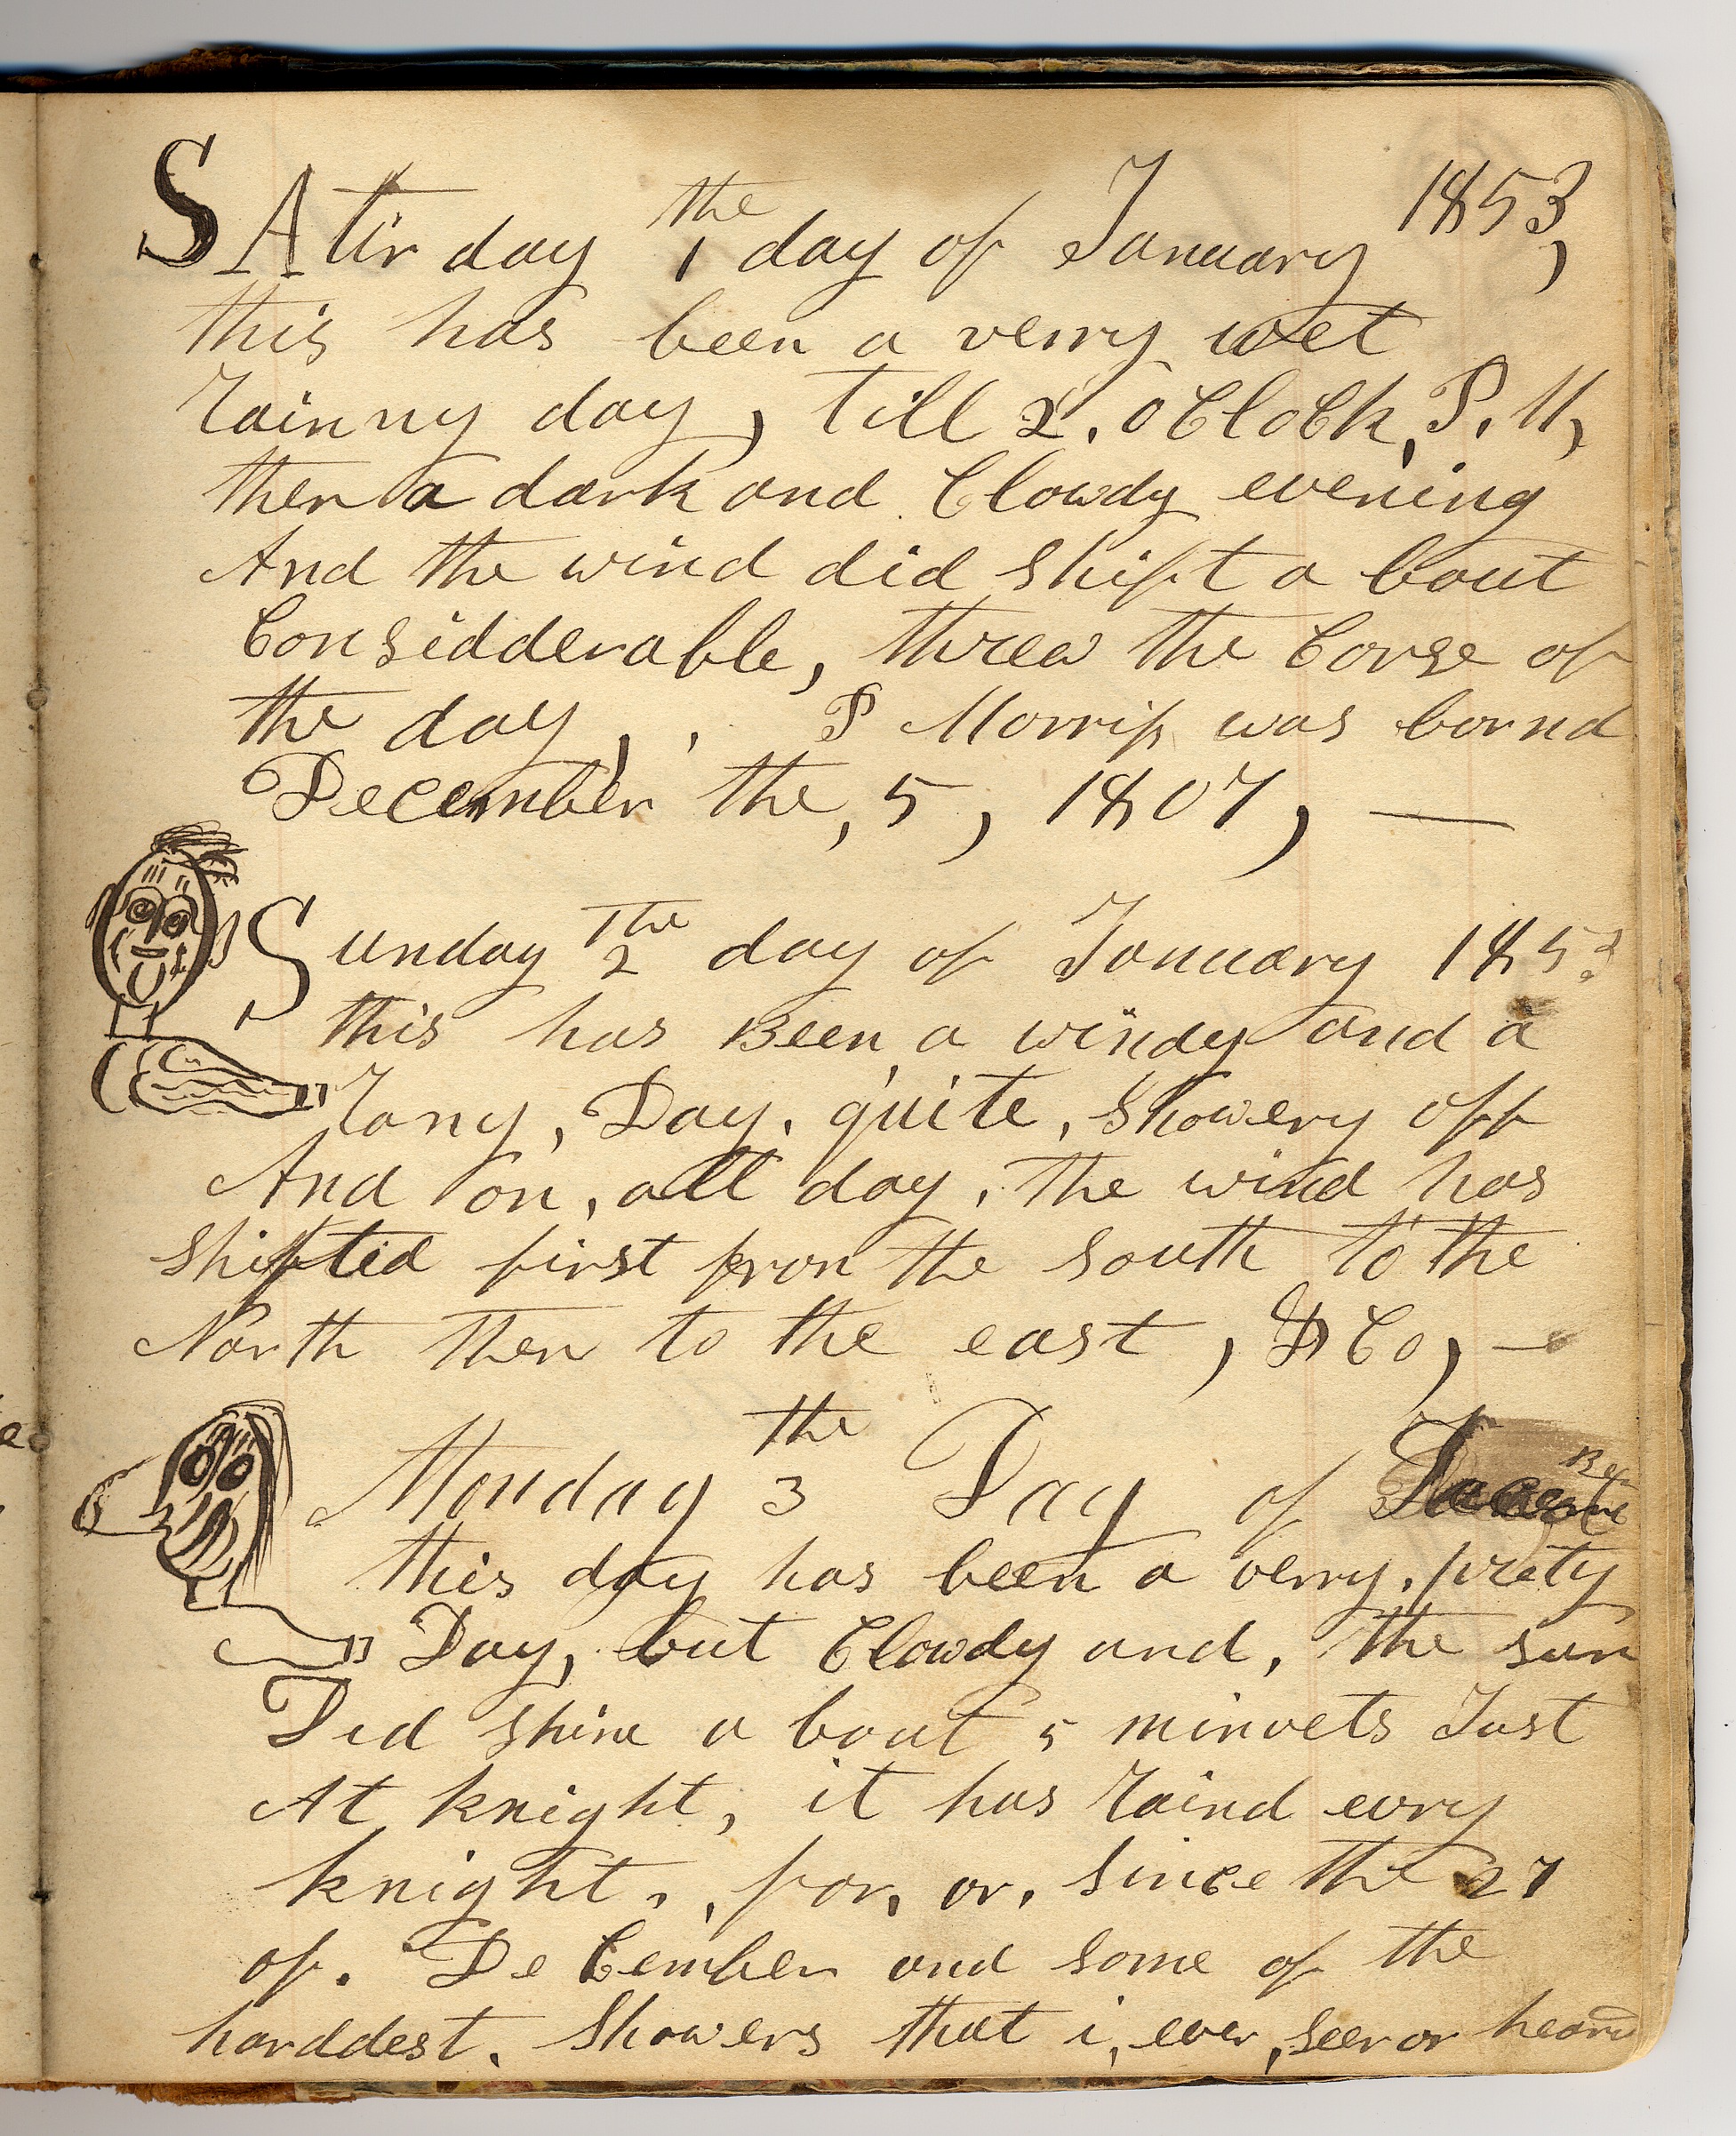 SAturday the 1 day of January 1853,
this has been a verry wet
rainny day, till 2. oCloCk, P. M,
then a dark and Clowdy evening
And the wind did shift a bout
Considderable, threw the Corse of
the day, . P Morriss was bornd
December the, 5, 1807, —
Sunday The 2 day of January 1853
this has Been a windy and a
rany, Day. quite, showery off
And on, all day, the wind has
shifted first fron the south to the
North then to the east, & Co, —
Monday the 3 Day of
this day has been a verry. prety
Day, but Clowdy and, the sun
Did shine a bout 5 minvets Just
At knight, it has raind evry
knight, , for, or, since the 27
of. DeCember and some of the
harddest. showers that i, ever, seer or heard